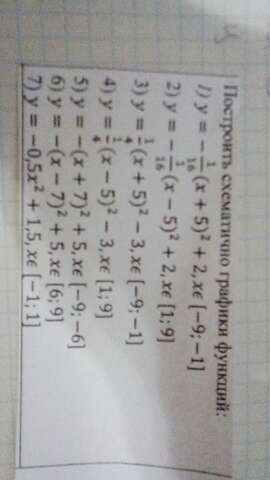 Построить схематично графики функций:
1) y = −1/16(x + 5)² + 2, xϵ [−9; −1]
2) y = −1/16(x − 5)² + 2, xϵ [1; 9]
3) y = 1/4(x + 5)² − 3, xϵ [−9; −1]
4) y = 1/4(x − 5)² − 3, xϵ [1; 9]
5) y = −(x + 7)² + 5, xϵ [−9; −6]
6) y = −(x − 7)² + 5, xϵ [6; 9]
7) y = −0,5x² + 1,5, xϵ [−1; 1]